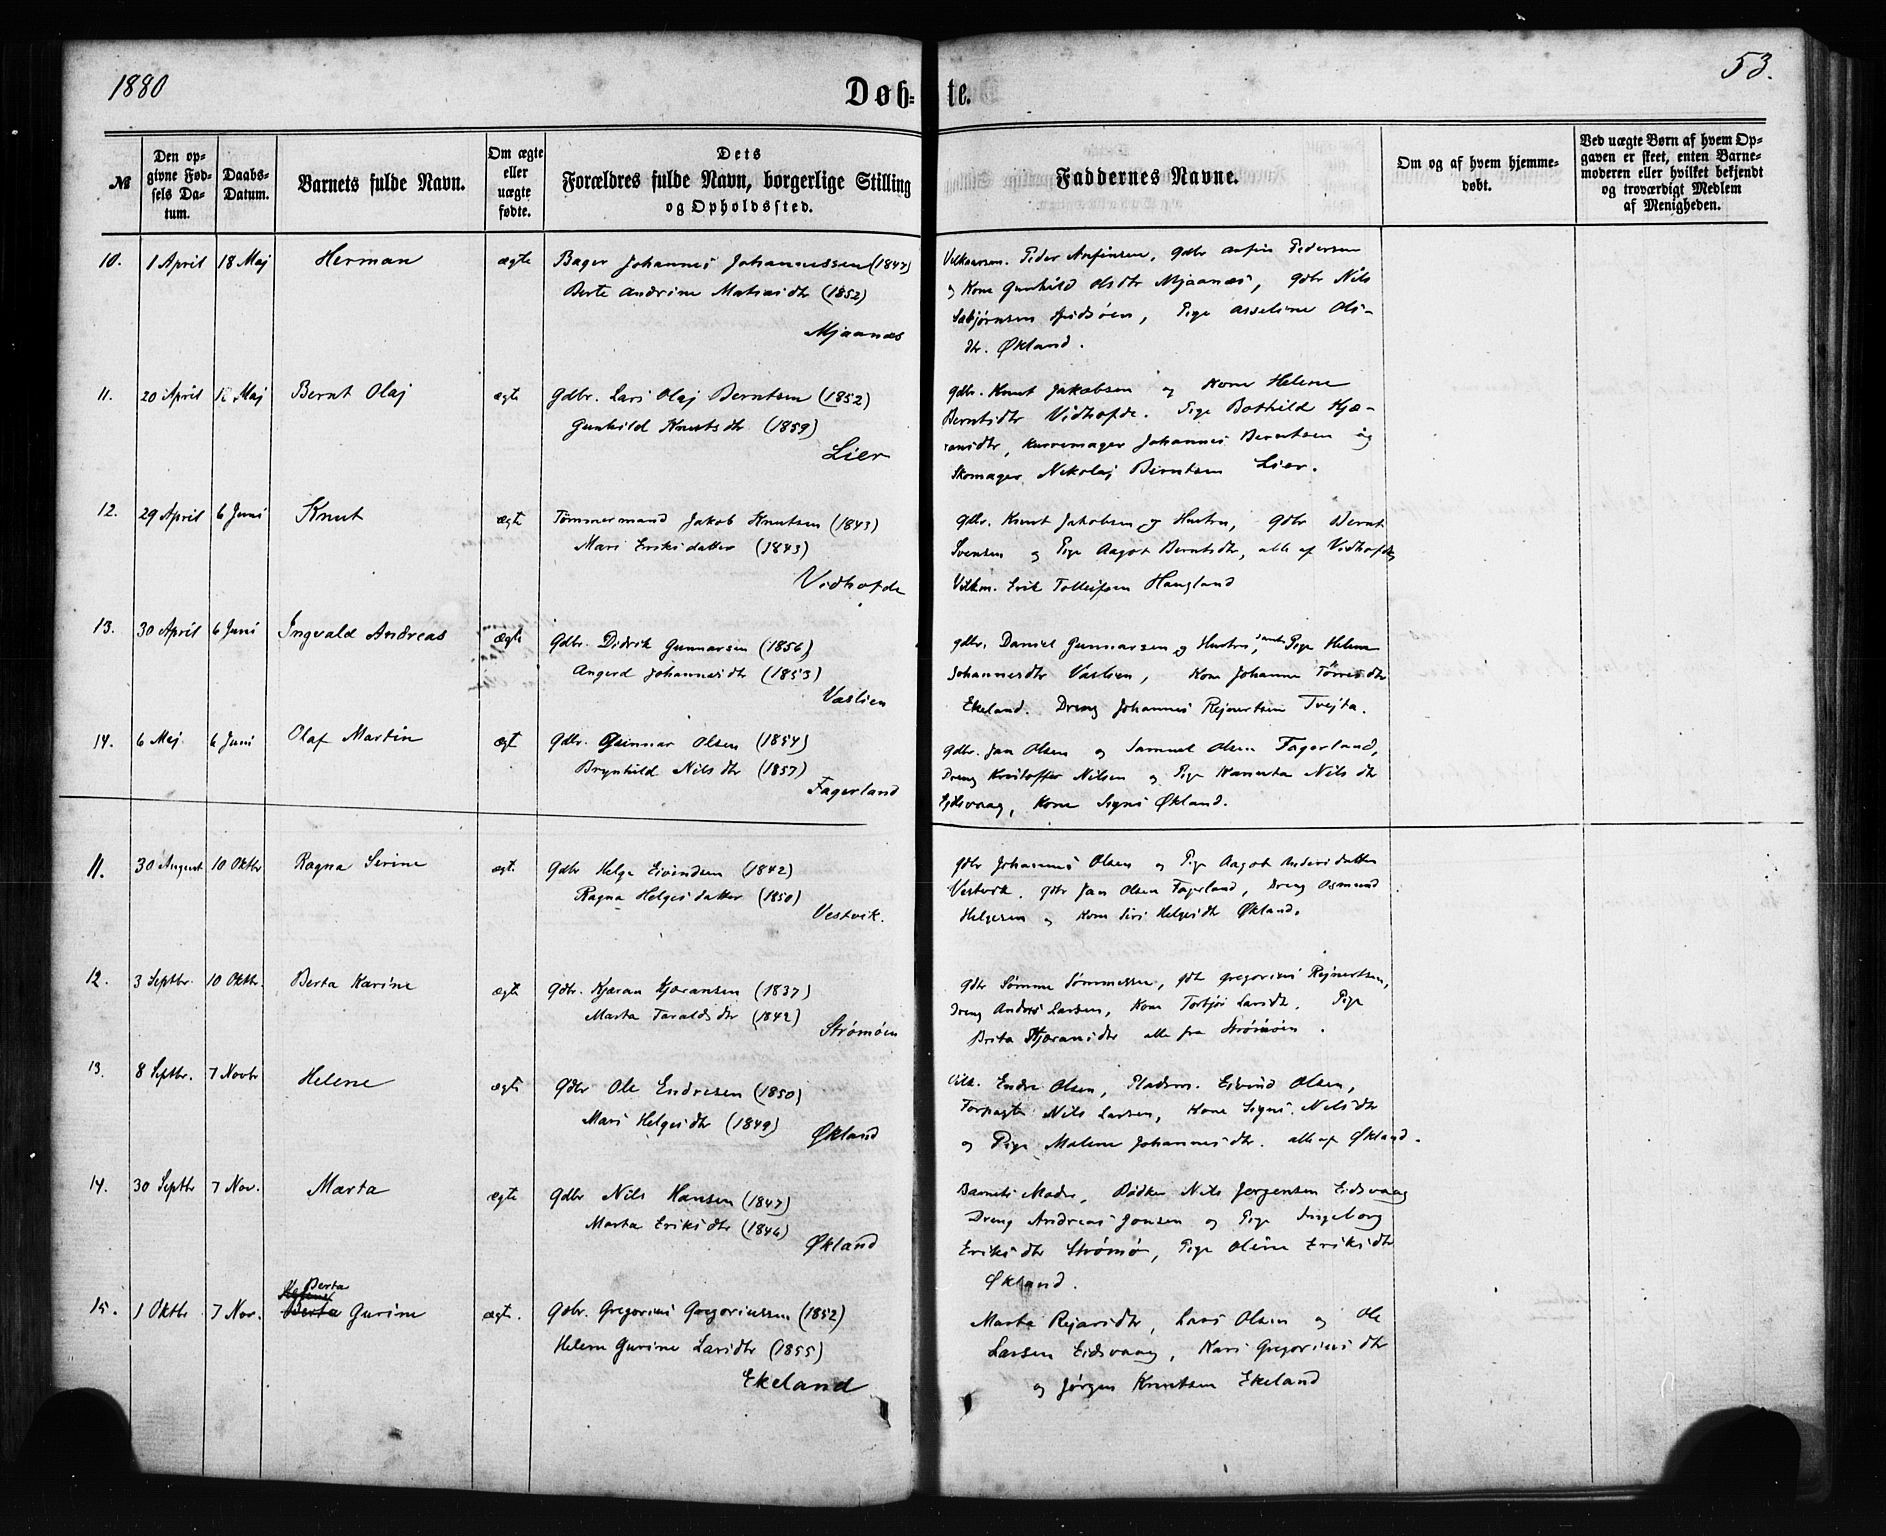 1880
Døb-
te.
53.
№
Den op-
givne Fød-
sels Da-
tum.
Daabs-
Datum.
Barnets fulde Navn.
Om ægte
eller
uægte
fødte.
Dets
Forældres fulde Navn, borgerlige Stilling
og Opholdssted.
Faddernes Navne.
Om og af hvem hjemme-
døbt.
Ved uægte Børn af hvem Op-
gaven er skeet, enten Barne-
moderen eller hvilket bekjendt
og troværdigt Medlem
af Menigheden.
10. 1 April 18 Maj Herman ægte Bager Johannes Johannessen (1847)
Berte Andrine Matsdtr (1852)
Mjaanes
Peder Anfinsen, Gdbr Anfin Pedersen
og Kone Gunhild Olsdtr Mjaanes, Gdbr Nils
Pige Asseline Ols-
dtr. Økland.
11. 20 April 18 Maj Bernt Olaj ægte Gdbr. Lars Olaj Berntsen (1852)
Gunhild Knutsdtr (1859)
Lier
Gdbr. Knut Jakobsen og Kone Helene
Berntsdtr Vidhofde. Pige Bothild Kjæ-
ransdtr, Kurvemager Johannes Berntsen og
Skomager Nikolaj Berntsen Lier.
12. 29 April 6 Juni Knut ægte Tømmermand Jakob Knutsen (1843)
Mari Eriksdatter (1843)
Vidhofde
Gdbr. Knut Jakobsen og Hustru, Gdbr Bernt
Svensen og Pige Aagot Berntsdtr, alle af Vidhofde
Vidkm. Erik Tolleifsen Haugland
13. 30 April 6 Juni Ingvald Andreas ægte Gdbr. Didrik Gunnarsen (1856)
Angerd Johannesdtr (1853)
Vaslien
Gdbr. Daniel Gunnarsen og Hustru, samt Pige Helene
Johannesdtr Vaslien, Kone Johanne Tørresdtr
Ekeland. Dreng Johannes Rejnertsen Tvejta.
14. 6 Maj 6 Juni Olaf Martin ægt Gdbr. Gunnar Olsen (1854)
Brynhild Nilsdtr (1857)
Fagerland
Gdbr. Jan Olsen og Samuel Olsen Fagerland,
Dreng Kristoffer Nilsen og Pige Nilsdtr
Eidsvaag, Kone Signi Økland.
11. 30 August 10 Oktbr Ragna Serine ægt. Gdbr Helge Eivindsen (1842)
Ragna Helgesdatter (1850)
Vestvik.
Gdbr Johannes Olsen og Pige Aagot Andersdatter
Vestvik. Gdbr Jan Olsen Fagerland, Dreng Osmund
Helgesen og Kone Siri Helgesdtr Økland.
12. 3 Septbr. 10 Oktbr. Berta Karine ægte Gdbr. Kjæran Kjæransen (1837)
Marta Taraldsdtr (1842)
Strømøen
Gdbr Sømme Sømmesen, Gdbr Gregorius Rejnertsen,
Dreng Andres Larsen, Kone Torbjør Larsdtr. Pige
Brita Kjæransdtr alle fra Strømøen.
13. 8 Septbr. 7 Novbr Helene ægte Gdbr Ole Endresen (1850)
Mari Helgesdtr (1849)
Økland
Endre Olsen, Pladsm. Eivind Olsen,
Forpagter Nils Larsen, Kone Signi Nilsdtr
og Pige Malene Johannesdtr. alle af Økland.
14. 30 Septbr 7 Nov. Marta ægte Gdbr Nils Hansen (1847)
Marta Eriksdtr (1846)
Økland
Barnets Moder, Bødker Nils Jørgensen Eidsvaag
Dreng Andreas Jonsen og Pige Ingeborg
Eriksdtr Strømø, Pige Oline Eriksdtr
Økland.
Berta
15. 1 Oktbr 7 Nov. Berta Gurine ægt. Gdbr. Gregorius Gregoriussen (1852)
Helene Gurine Larsdtr (1855)
Ekeland
Marta Rejarsdtr, Lars Olsen og Ole
Larsen Eidsvaag, Kari Gregoriusdtr
og Jørgen Knutsen Ekeland